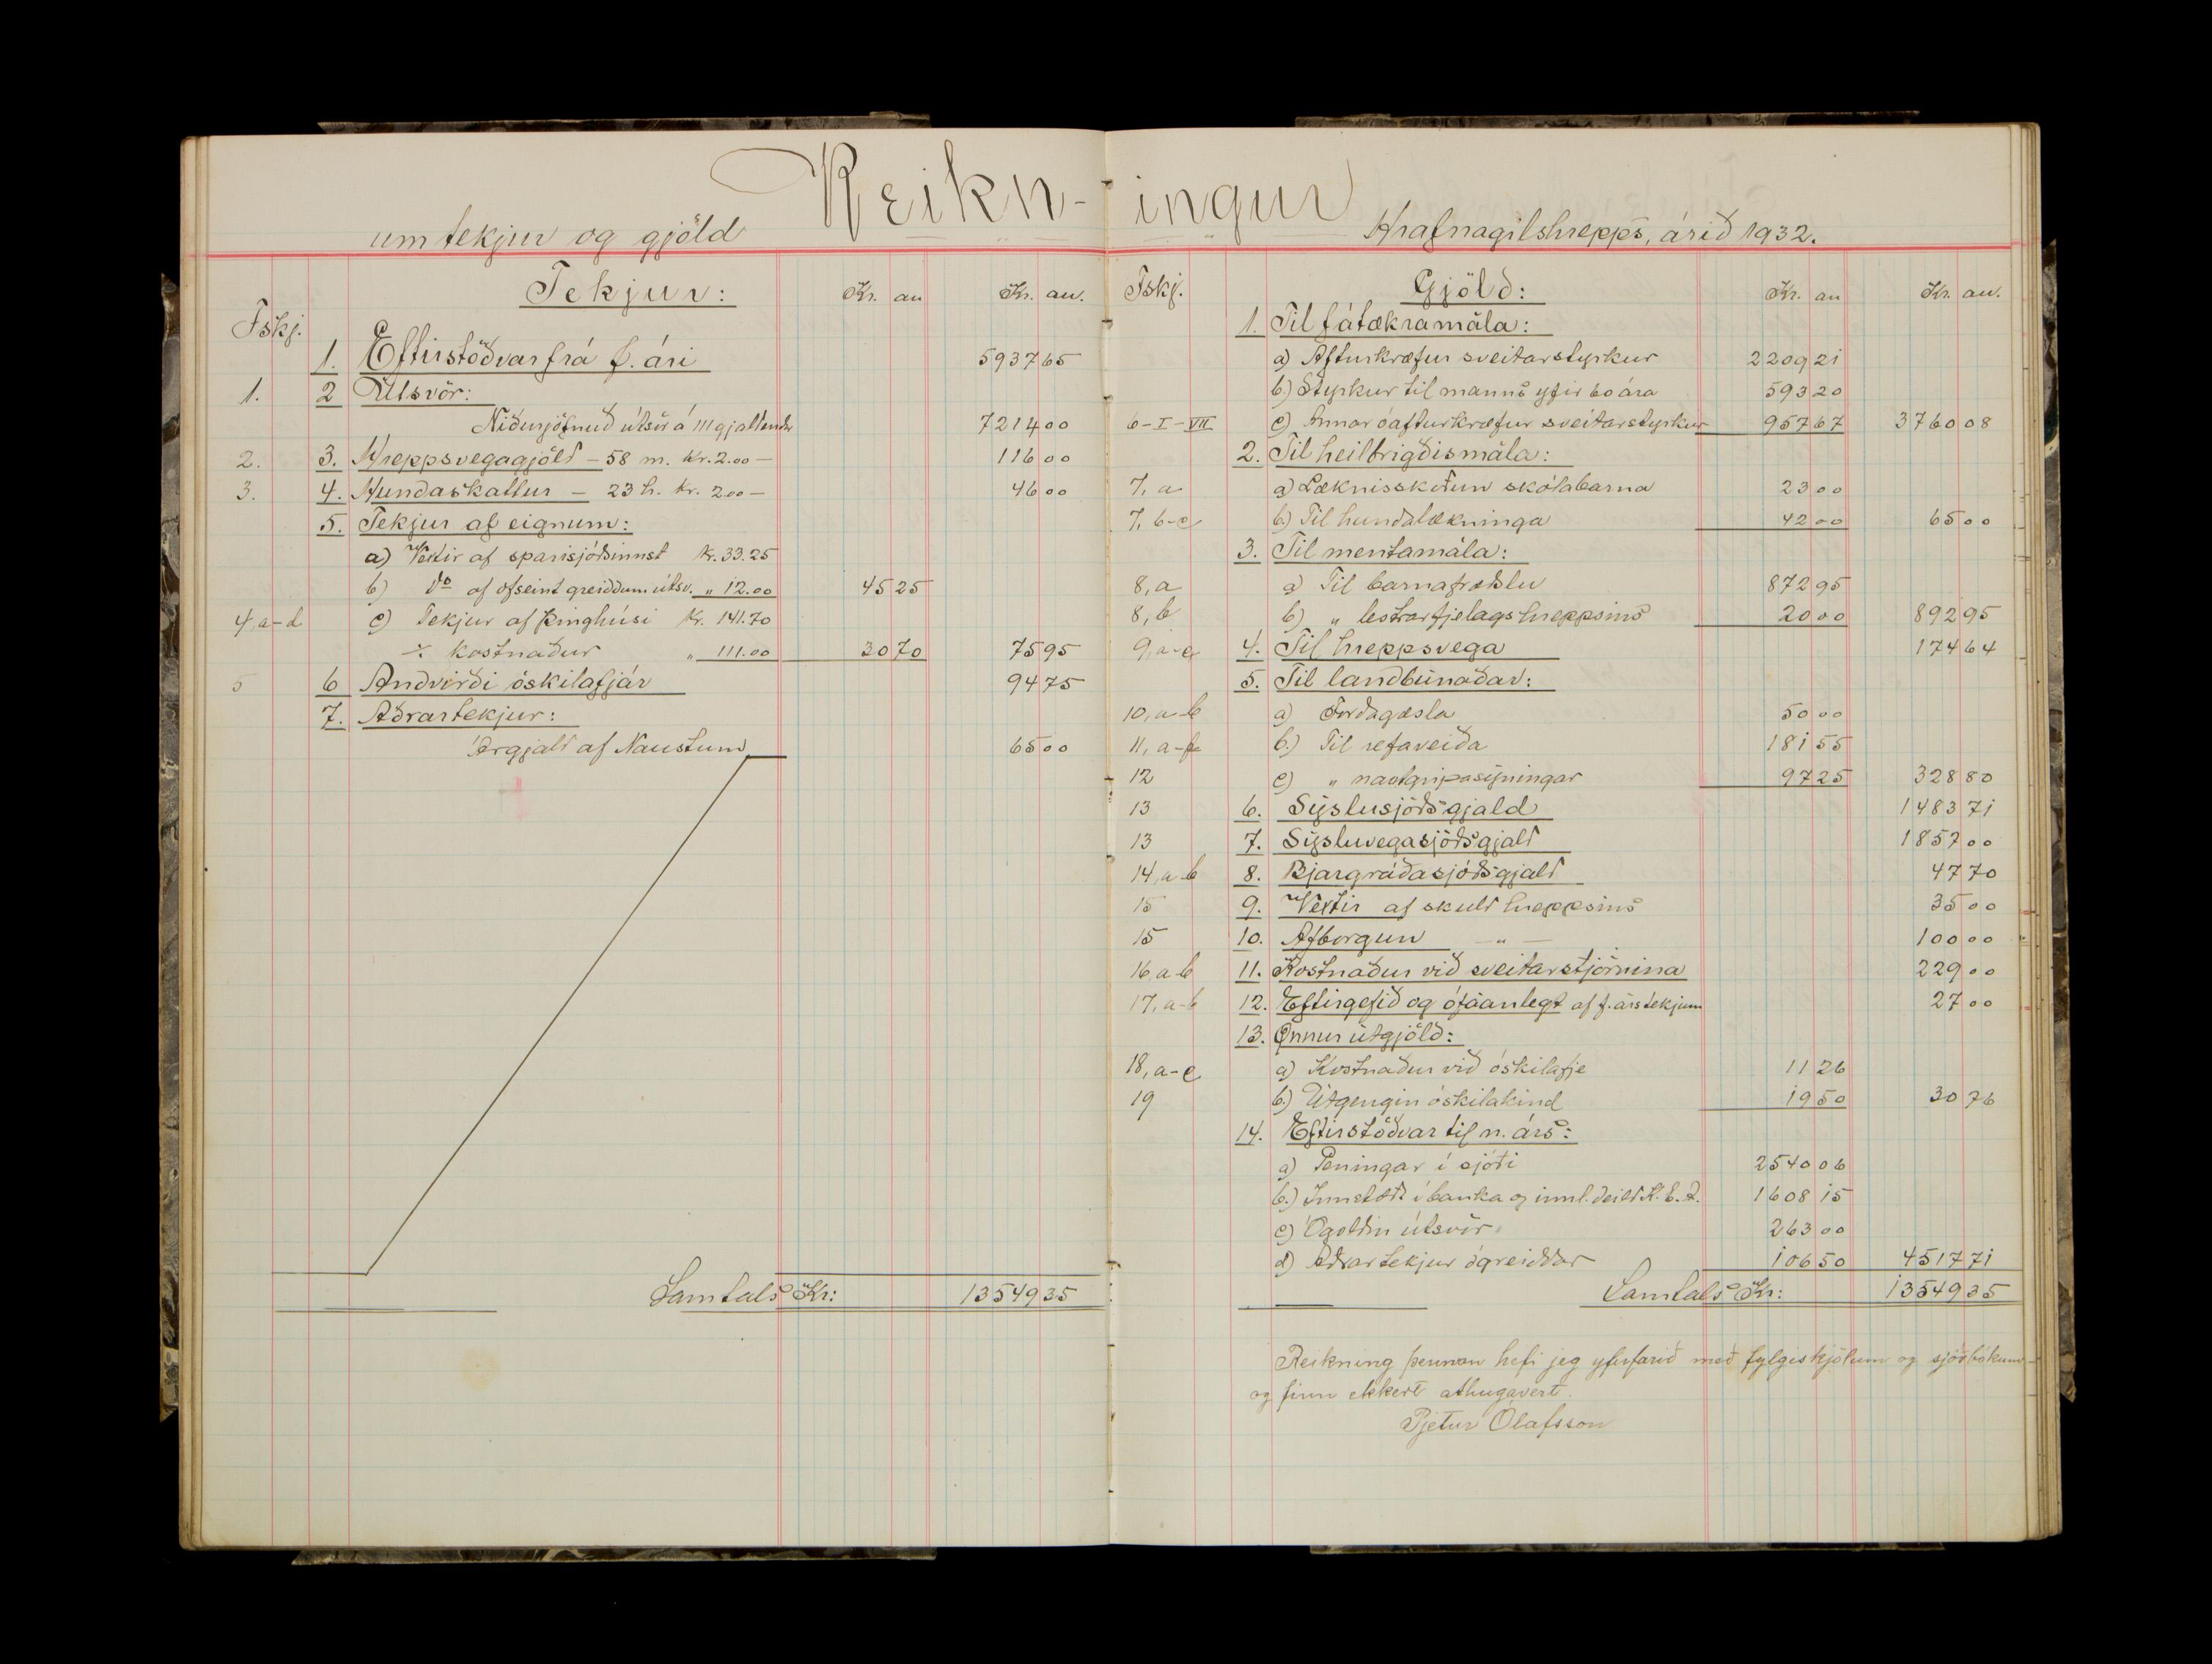 Reikn-ingur
um tekjur og gjöld Hrafnagilshrepps, árið 1932.
Tekjur: Kr. au Kr. au.
Fskj.
1. Eftirstöðvar frá f. ári 5937 65
1. 2 Útsvör:
Niðurjöfnuð útsvör á 111 gjaldendur 7214 00
2. 3. Hreppsvegagjöld – 58 m. Kr. 2.00 – 116 00
3. 4. Hundaskattur – 23 h. Kr. 2.00 – 46 00
5. Tekjur af eignum:
a) Vextir af sparisjóðsinnst Kr. 33.25
b) do af ofseint greiddum útsv. „ 12.00 45 25
4, a-d c) Tekjur af þinghúsi Kr. 141.70
÷ kostnaður „ 111.00 30 70 75 95
5 6 Andvirði óskilafjár 94 75
7. Aðrar tekjur:
Árgjald af Naustum 65 00
Samtals Kr: 13549 35
Fskj. Gjöld: Kr. au Kr. au.
1. Til fátækramála:
a) Afturkræfur sveitarstyrkur 2209 21
b.) Styrkur til manns yfir 60 ára 593 20
6-I-VII c) Annar óafturkræfur sveitarstyrkur 957 67 3760 08
2. Til heilbrigðismála:
7, a a) Læknisskoðun skólabarna 23 00
7, b-c b.) Til hundalækninga 42 00 65 00
3. Til mentamála:
8, a a) Til barnafræðslu 872 95
8, b b) „ lestrarfjelags hreppsins 20 00 892 95
9, a-c 4. Til hreppsvega 174 64
5. Til landbúnaðar:
10, a-b a) Forðagæsla 50 00
11, a-f b.) Til refaveiða 181 55
12 c) „ nautgripasýningar 97 25 328 80
13 6. Sýslusjóðsgjald 1483 71
13 7. Sýsluvegasjóðsgjald 1857 00
14, a-b 8. Bjargráðasjóðsgjald 47 70
15 9. Vextir af skuld hreppsins 35 00
15 10. Afborgun – „ – 100 00
16, a-b 11. Kostnaður við sveitarstjórnina 229 00
17, a-b 12. Eftirgefið og ófáanlegt af f. árs tekjum 27 00
13. Önnur útgjöld:
18, a-c a) Kostnaður við óskilafje 11 26
19 b.) Útgengin óskilakind 19 50 30 76
14. Eftirstöðvar til n. árs:
a) Peningar í sjóði 2540 06
b.) Innstæði í banka og innl. deild K. E. A. 1608 15
c) Ógoldin útsvör 263 00
d) Aðrar tekjur ógreiddar 106 50 4517 71
Samtals Kr: 13549 35
Reikning þennan hefi jeg yfirfarið með fylgiskjölum og sjóðbókum
og finn ekkert athugavert.
Pjetur Ólafsson